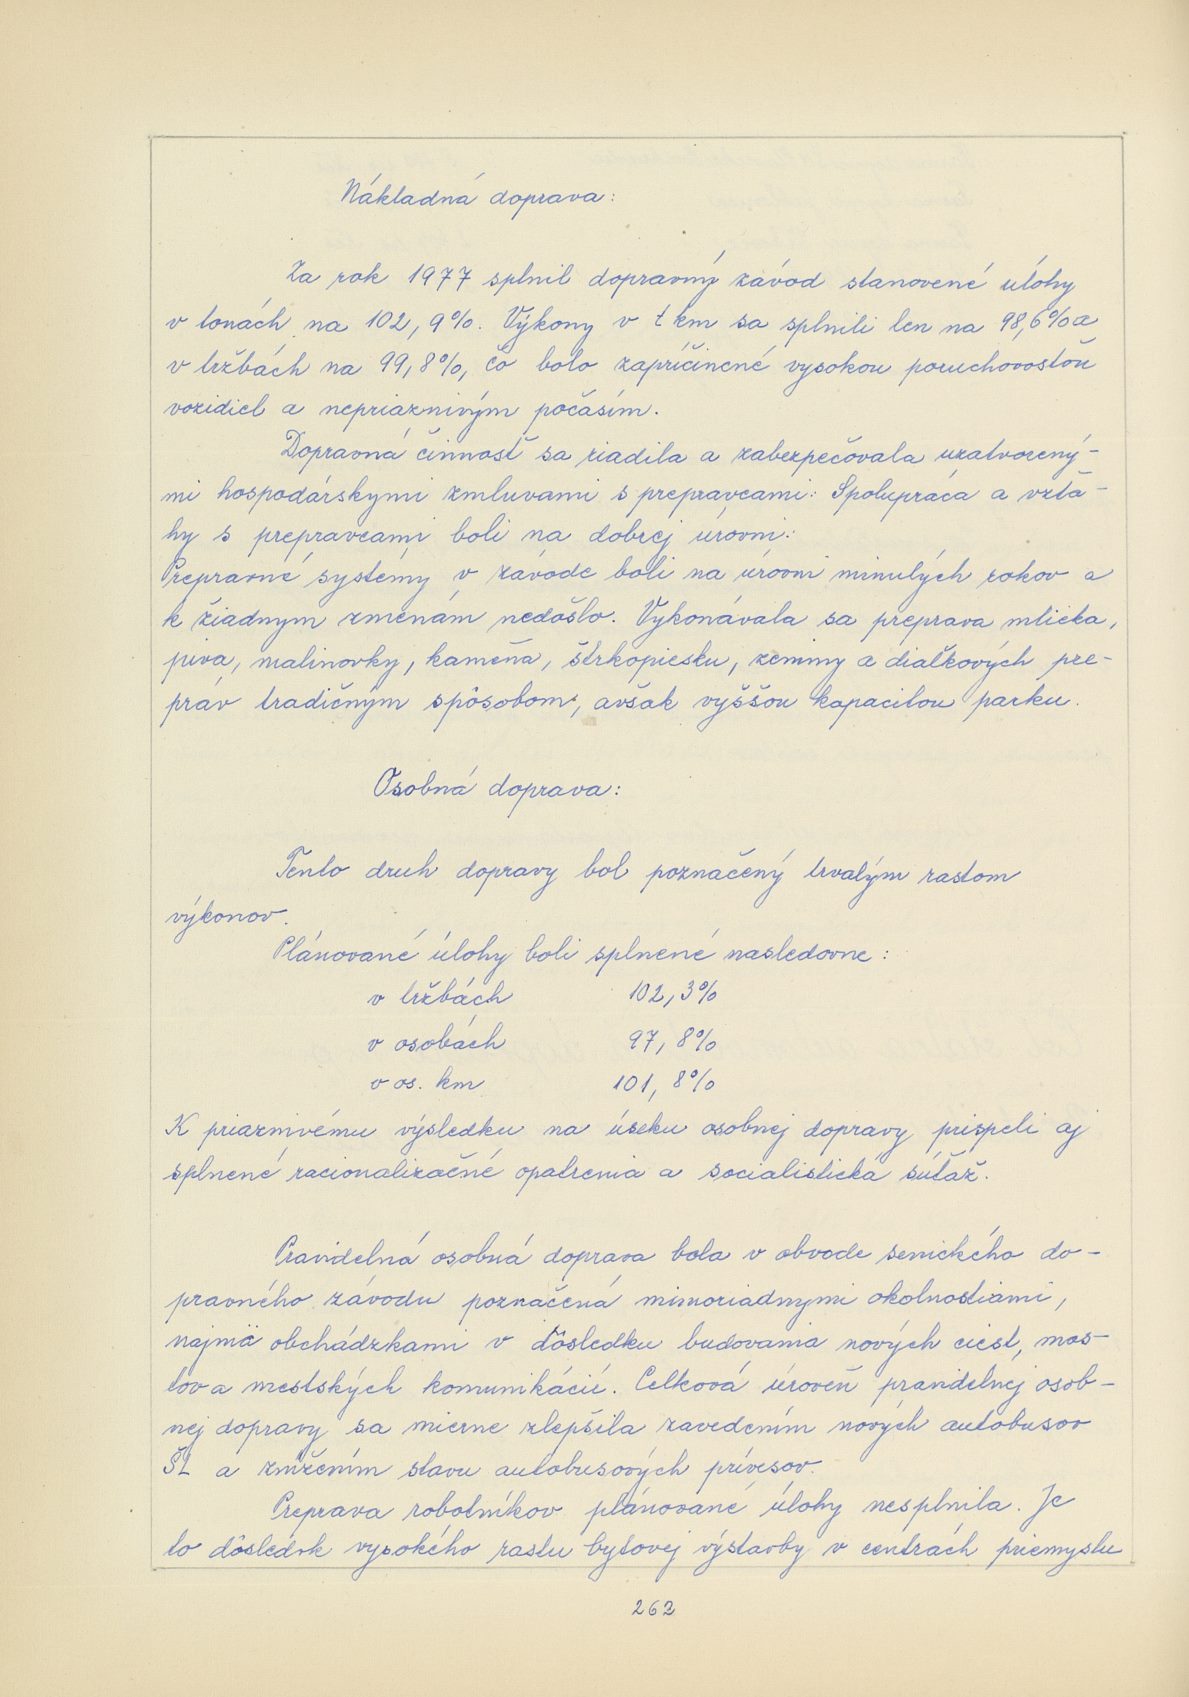 Nákladná doprava:
Za rok 1977 splnil dopravný závod stanovené úlohy
v tonách na 102,9%. Výkony v tkm sa splnili len na 98,6% a
v tržbách na 99,8%, čo bolo zapríčinené vysokou poruchovosťou
vozidiel a nepriaznivým počasím.
Dopravná činnosť sa riadila a zabezpečovala uzatvorený-
mi hospodárskymi zmluvami s prepravcami: Spolupráca a vzťa-
hy s prepravcami boli na dobrej úrovni:
Prepravné systémy v závode boli na úrovni minulých rokov a
k žiadnym zmenám nedošlo. Vykonávala sa preprava mlieka,
piva, malinovky, kameňa, štrkopiesku, zeminy a diaľkových pre-
práv tradičným spôsobom, avšak vyššou kapacitou parku.
Osobná doprava:
Tento druh dopravy bol poznačený trvalým rastom
výkonov.
Plánované úlohy boli splnené nasledovne:
v tržbách 102,3%
v osobách 97,8%
v os. km 101,8%
K priaznivému výsledku na úseku osobnej dopravy prispeli aj
splnené racionalizačné opatrenia a socialistická súťaž.
Pravidelná osobná doprava bola v obvode senického do-
pravného závodu poznačená mimoriadnymi okolnosťami,
najmä obchádzkami v dôsledku budovania nových ciest, mos-
tov a mestských komunikácií. Celková úroveň pravidelnej osob-
nej dopravy sa mierne zlepšila zavedením nových autobusov
ŠL a znížením stavu autobusových prívesov.
Preprava robotníkov plánované úlohy nesplnila. Je
to dôsledok vysokého rastu bytovej výstavby v centrách priemyslu
262